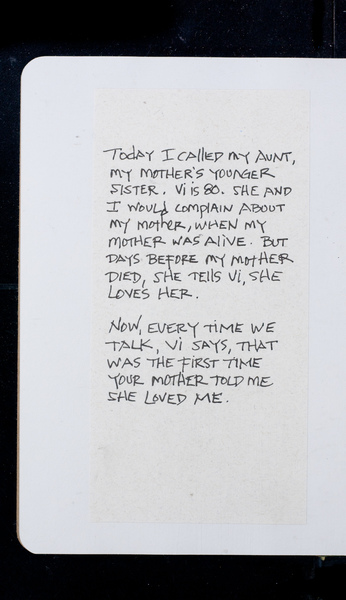 TODAY I CALLED MY AUNT,
MY MOTHER'S YOUNGER
SISTER. Vi is 80. SHE AND
I WOULD COMPLAIN ABOUT
MY MOTHER, WHEN MY
MOTHER WAS ALIVE. BUT
DAYS BEFORE MY MOTHER
DIED, SHE TELLS Vi, SHE
LOVES HER.
NOW, EVERY TIME WE
TALK, Vi SAYS, THAT
WAS THE FIRST TIME
YOUR MOTHER TOLD ME
SHE LOVED ME.